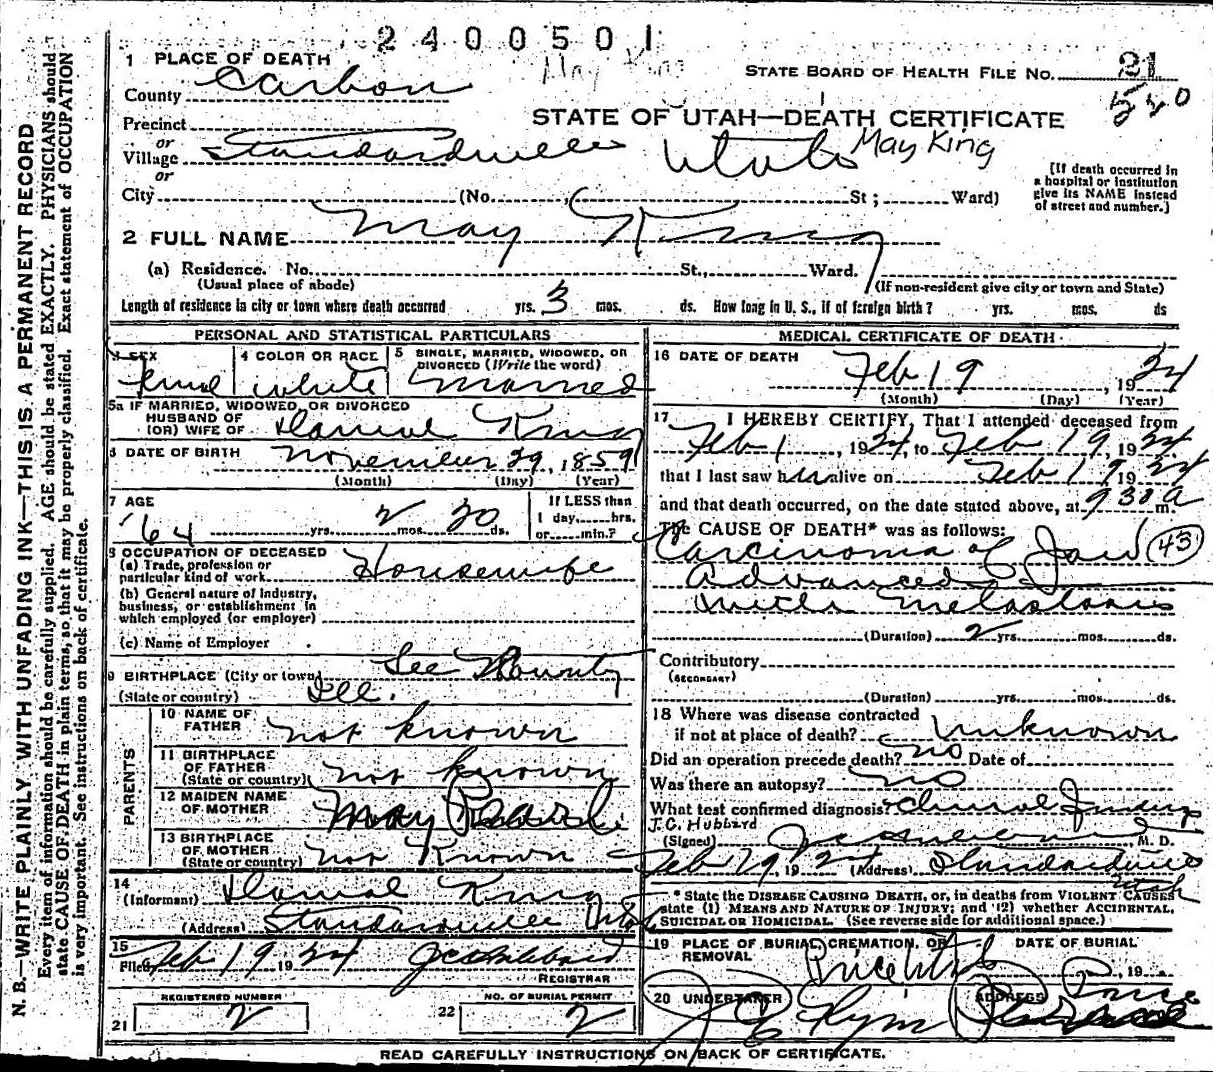 2400501
May King
1 PLACE OF DEATH
STATE BOARD OF HEALTH FILE No. 21
County Carbon
520
STATE OF UTAH—DEATH CERTIFICATE
Precinct
or
Village Standardville Utah May King
or
City (No. St; Ward)
[If death occurred in a hospital or institution give its NAME instead of street and number.]
2 FULL NAME May King
(a) Residence. No. St., Ward.
(Usual place of abode) (If non-resident give city or town and State)
Length of residence in city or town where death occurred yrs. 3 mos. ds. How long in U. S., if of foreign birth? yrs. mos. ds
PERSONAL AND STATISTICAL PARTICULARS
3 SEX
4 COLOR OR RACE white
5 SINGLE, MARRIED, WIDOWED, OR DIVORCED (Write the word)
Married
5a IF MARRIED, WIDOWED, OR DIVORCED
HUSBAND OF
(OR) WIFE OF Daniel King
6 DATE OF BIRTH November 29, 1859
(Month) (Day) (Year)
7 AGE 64 yrs. 2 mos. 20 ds.
If LESS than
1 day, hrs.
or min.?
8 OCCUPATION OF DECEASED
(a) Trade, profession or
particular kind of work Housewife
(b) General nature of industry,
business, or establishment in
which employed (or employer)
(c) Name of Employer
9 BIRTHPLACE (City or town) Lee County
(State or country) Ill.
PARENTS
10 NAME OF
FATHER not known
11 BIRTHPLACE
OF FATHER
(State or country) not known
12 MAIDEN NAME
OF MOTHER Mary
13 BIRTHPLACE
OF MOTHER
(State or country) not Known
14
(Informant) Daniel King
(Address) Standardville Utah
15
Filed Feb 19 1924 J C Hubbard
REGISTRAR
REGISTERED NUMBER
21 2
NO. OF BURIAL PERMIT
22 2
MEDICAL CERTIFICATE OF DEATH
16 DATE OF DEATH Feb 19, 1924
(Month) (Day) (Year)
17 I HEREBY CERTIFY, That I attended deceased from
Feb 1, 1924, to Feb 19, 1924
that I last saw her alive on Feb 19 1924
and that death occurred, on the date stated above, at 930 a m.
The CAUSE OF DEATH* was as follows:
Carcinoma of Jaw (43)
Advanced
with metastasis
(Duration) 2 yrs. mos. ds.
Contributory
(SECONDARY)
(Duration) yrs. mos. ds.
18 Where was disease contracted
if not at place of death? Unknown
Did an operation precede death? no Date of
Was there an autopsy? no
What test confirmed diagnosis? clinical findings
J.C. Hubbard
(Signed) J C Hubbard, M. D.
Feb 19, 1924 (Address) Standardville
Utah
* State the DISEASE CAUSING DEATH, or, in deaths from VIOLENT CAUSES
state (1) MEANS AND NATURE OF INJURY; and (2) whether ACCIDENTAL,
SUICIDAL OR HOMICIDAL. (See reverse side for additional space.)
19 PLACE OF BURIAL, CREMATION, OR
REMOVAL Price Utah
DATE OF BURIAL
, 19
20 UNDERTAKER J E Flynn
ADDRESS Price
READ CAREFULLY INSTRUCTIONS ON BACK OF CERTIFICATE.
N. B.—WRITE PLAINLY WITH UNFADING INK—THIS IS A PERMANENT RECORD
Every item of information should be carefully supplied. AGE should be stated EXACTLY. PHYSICIANS should
state CAUSE OF DEATH in plain terms, so that it may be properly classified. Exact statement of OCCUPATION
is very important. See instructions on back of certificate.